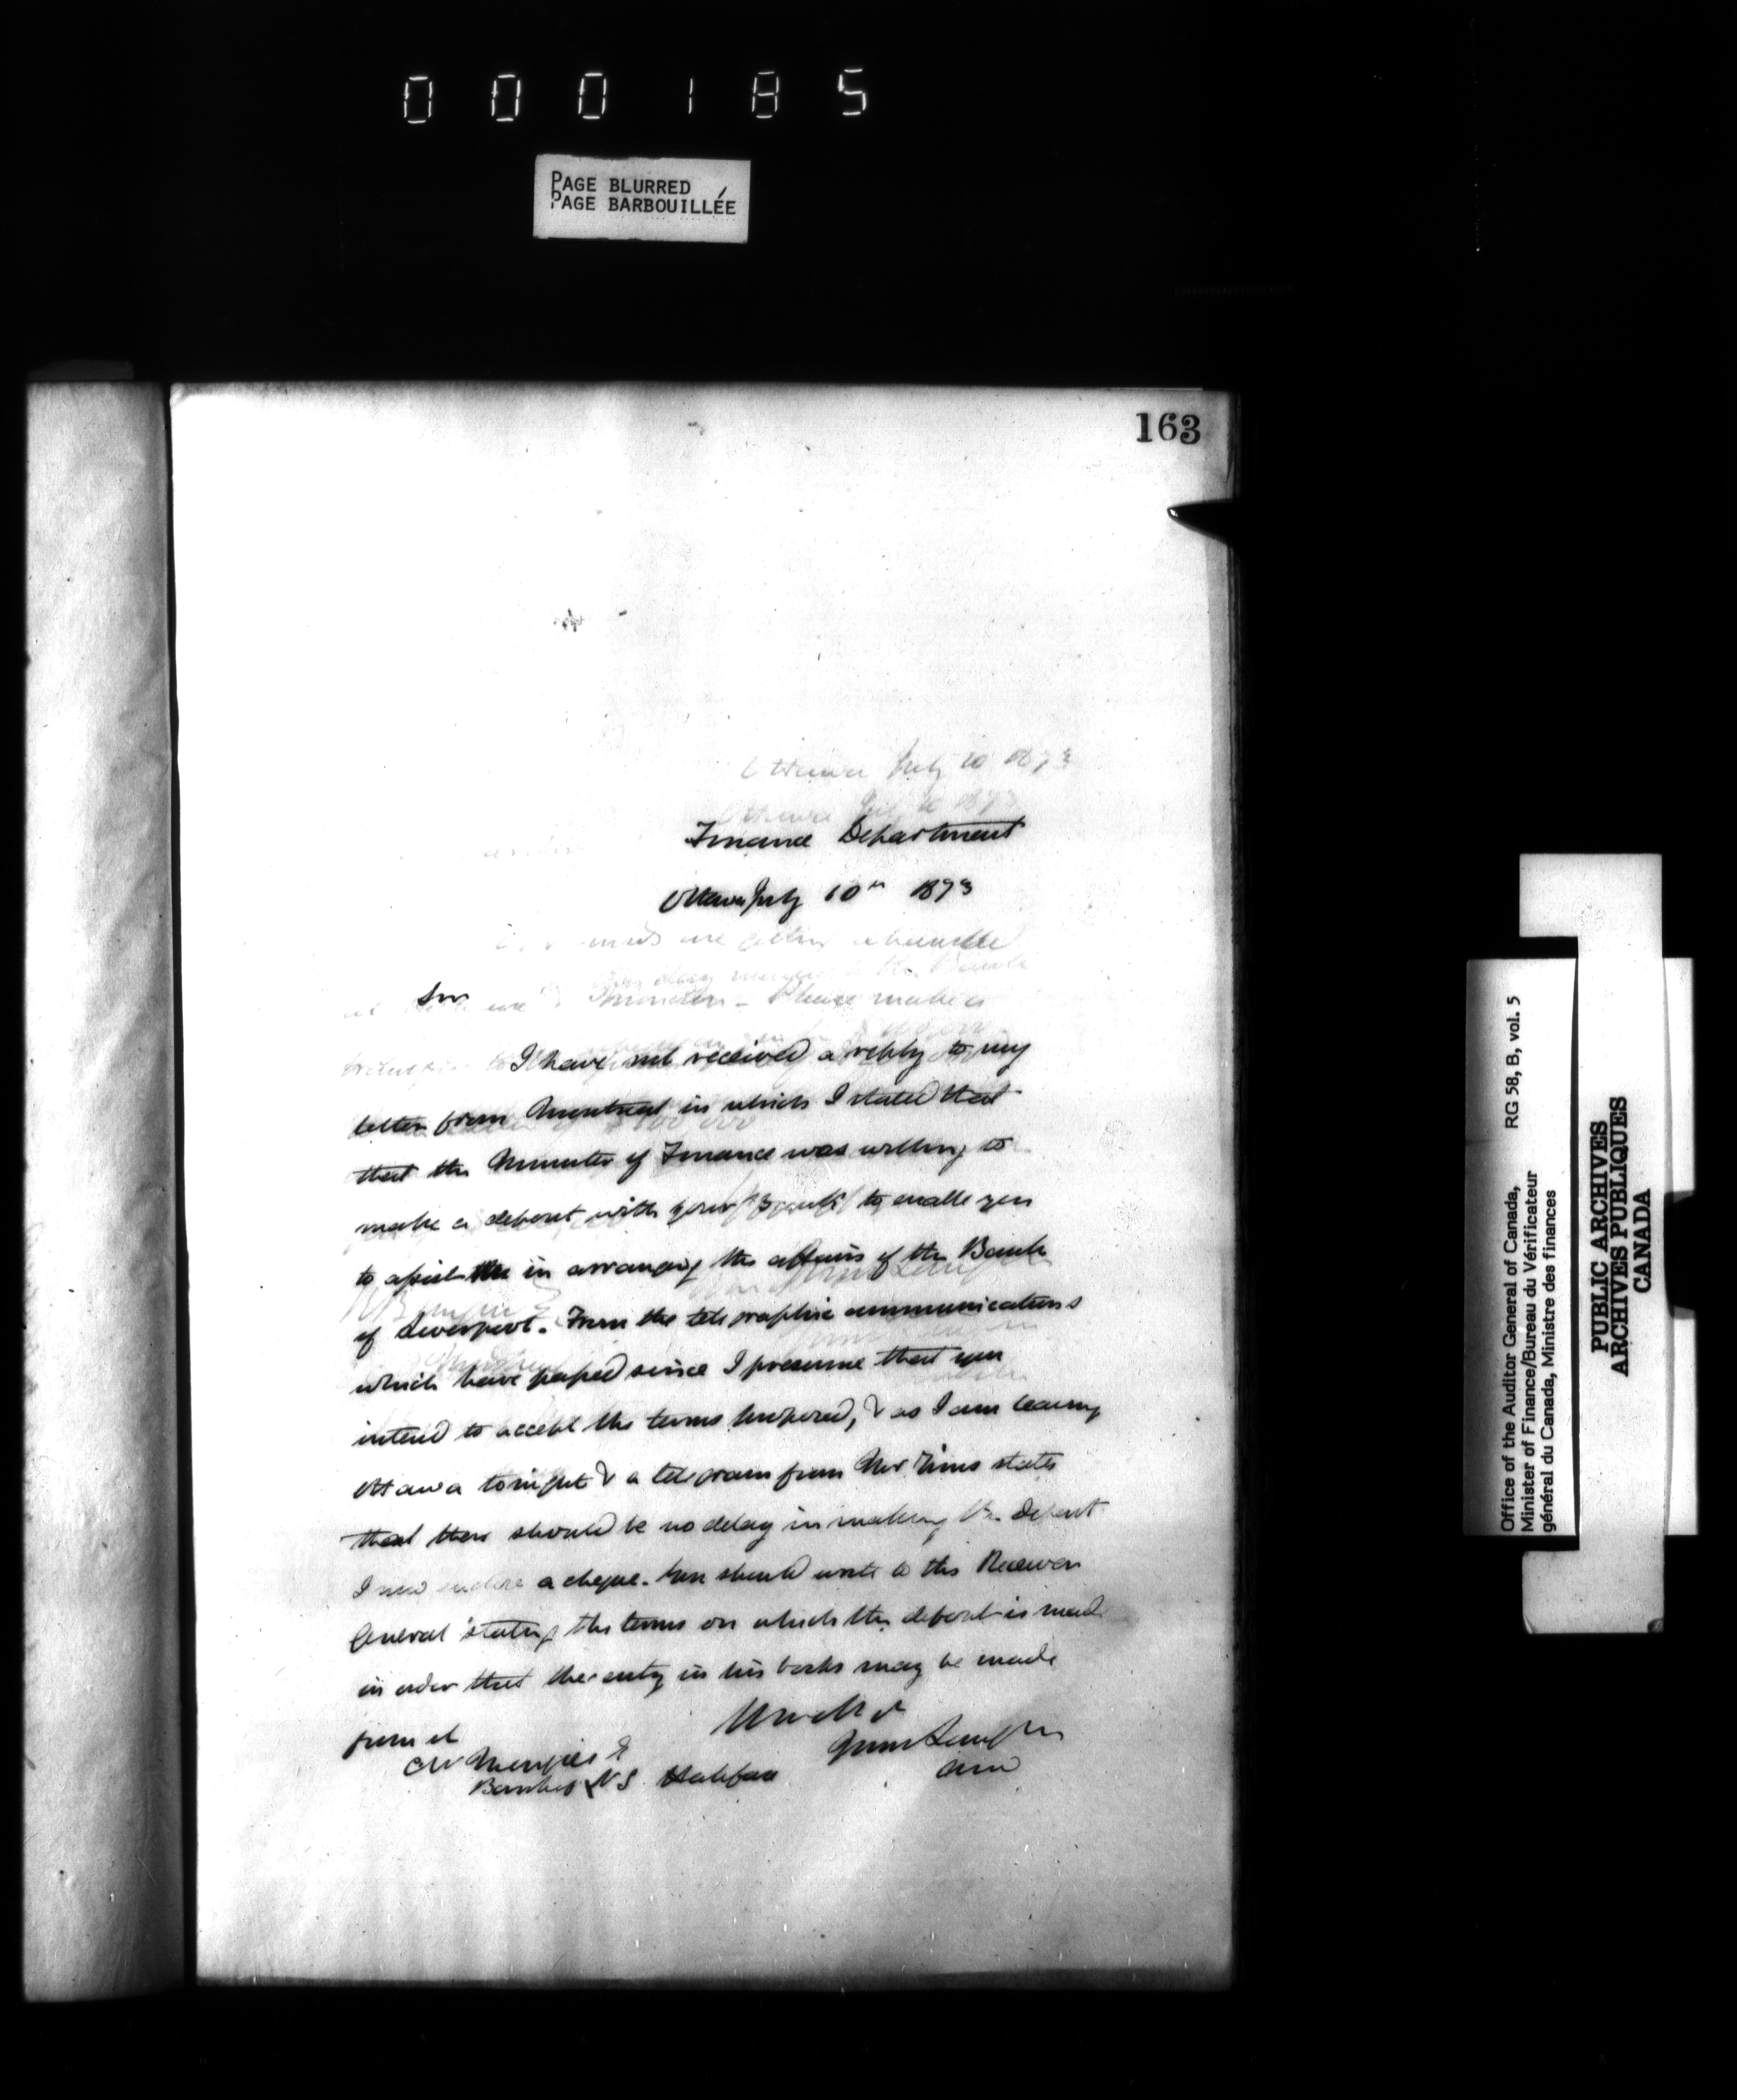 000185
PAGE BLURRED
PAGE BARBOUILLÉE
163
Ottawa July 10 1873
Finance Department
Ottawa July 10th 1873
Sir
I have not received a reply to my
letter from Montreal in which I stated that
that the Minister of Finance was willing to
make a deposit with your Bank to enable you
to assist in arranging the affairs of the Bank
of Liverpool. From the telegraphic communications
which have passed since I presume that you
intend to accept the terms proposed, & as I am leaving
Ottawa tonight & a telegram from Mr Tims states
that there should be no delay in making the deposit
I now enclose a cheque. You should write to the Receiver
General stating the terms on which the deposit is made
in order that the entry in his books may be made
from it
John Langton
Aud
C W Menzies
Bank N S Halifax
Office of the Auditor General of Canada, RG 58, B, vol. 5
Minister of Finance/Bureau du Vérificateur
général du Canada, Ministre des finances
PUBLIC ARCHIVES
ARCHIVES PUBLIQUES
CANADA